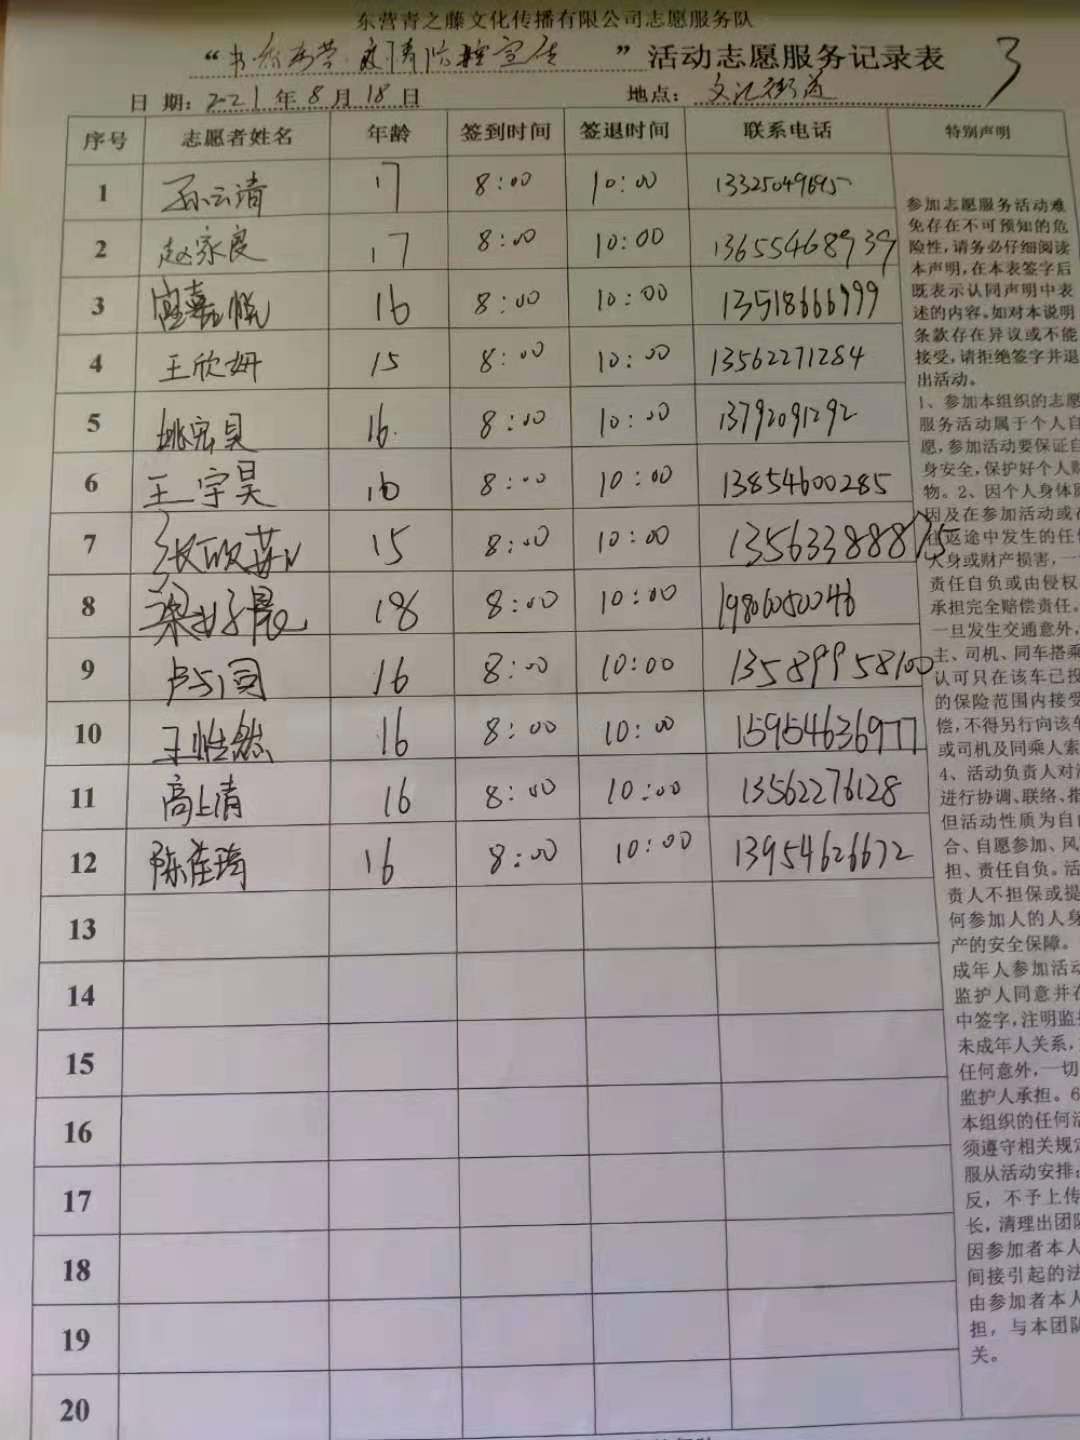 东营青之藤文化传播有限公司志愿服务队
“书香东营 疫情防控宣传”活动志愿服务记录表 3
日 期：2021 年 8 月 18 日 地点：文汇街道
序号 志愿者姓名 年龄 签到时间 签退时间 联系电话 特别声明
1 孙云清 17 8:00 10:00 13325049695
2 赵家良 17 8:00 10:00 13655468939
3 嘉悦 16 8:00 10:00 13518666999
4 王欣妍 15 8:00 10:00 13562271284
5 姚宏昊 16 8:00 10:00 13792091292
6 王宇昊 16 8:00 10:00 13854600285
7 张欣 15 8:00 10:00 13563388875
8 梁 晨 18 8:00 10:00 19806050046
9 卢 16 8:00 10:00 13589958100
10 王 然 16 8:00 10:00 15954636977
11 高上清 16 8:00 10:00 13562276128
12 陈 琦 16 8:00 10:00 13954626672
13
14
15
16
17
18
19
20
参加志愿服务活动难
免存在不可预知的危
险性，请务必仔细阅读
本声明，在本表签字后
既表示认同声明中表
述的内容。如对本说明
条款存在异议或不能
接受，请拒绝签字并退
出活动。
1、参加本组织的志愿
服务活动属于个人自
愿，参加活动要保证自
身安全，保护好个人财
物。2、因个人身体原
因及在参加活动或在
往返途中发生的任何
人身或财产损害，一
责任自负或由侵权
承担完全赔偿责任。
一旦发生交通意外，
主、司机、同车搭乘
认可只在该车已投
的保险范围内接受
偿，不得另行向该车
或司机及同乘人索
4、活动负责人对活
进行协调、联络、指
但活动性质为自由
合、自愿参加、风
担、责任自负。活
责人不担保或提
何参加人的人身
产的安全保障。
成年人参加活动
监护人同意并在
中签字，注明监护
未成年人关系，
任何意外，一切
监护人承担。6
本组织的任何活
须遵守相关规定
服从活动安排；
反，不予上传
长，清理出团队
因参加者本人
间接引起的法
由参加者本人
担，与本团队
关。